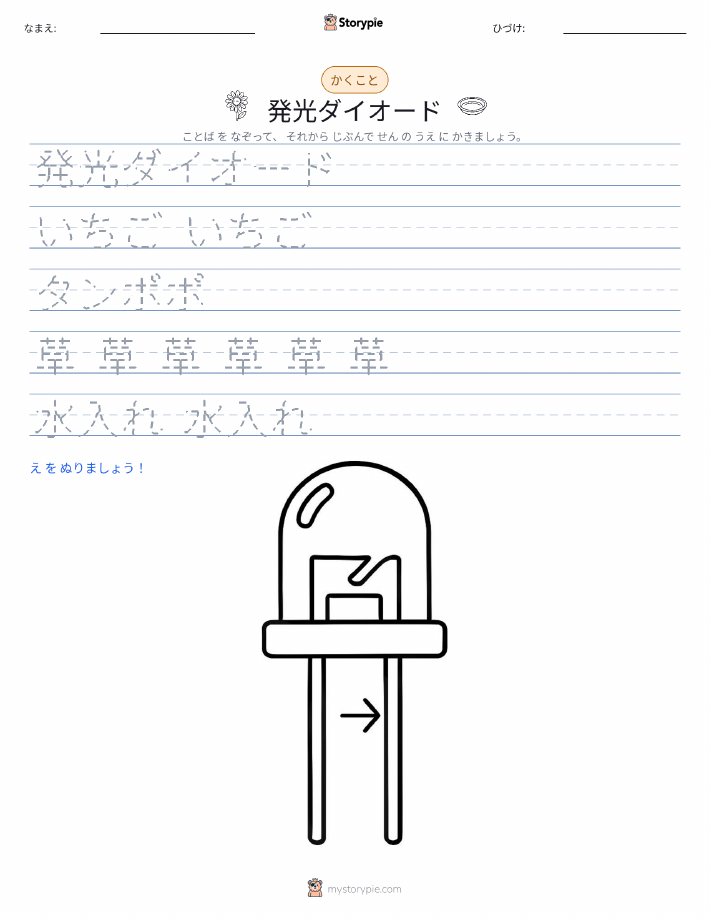 なまえ:
Storypie
ひづけ:
かくこと
発光ダイオード
ことば を なぞって、 それから じぶんで せん の うえ に かきましょう。
発光ダイオード
いちご いちご
タンポポ
草 草 草 草 草 草
水入れ 水入れ
え を ぬりましょう！
mystorypie.com